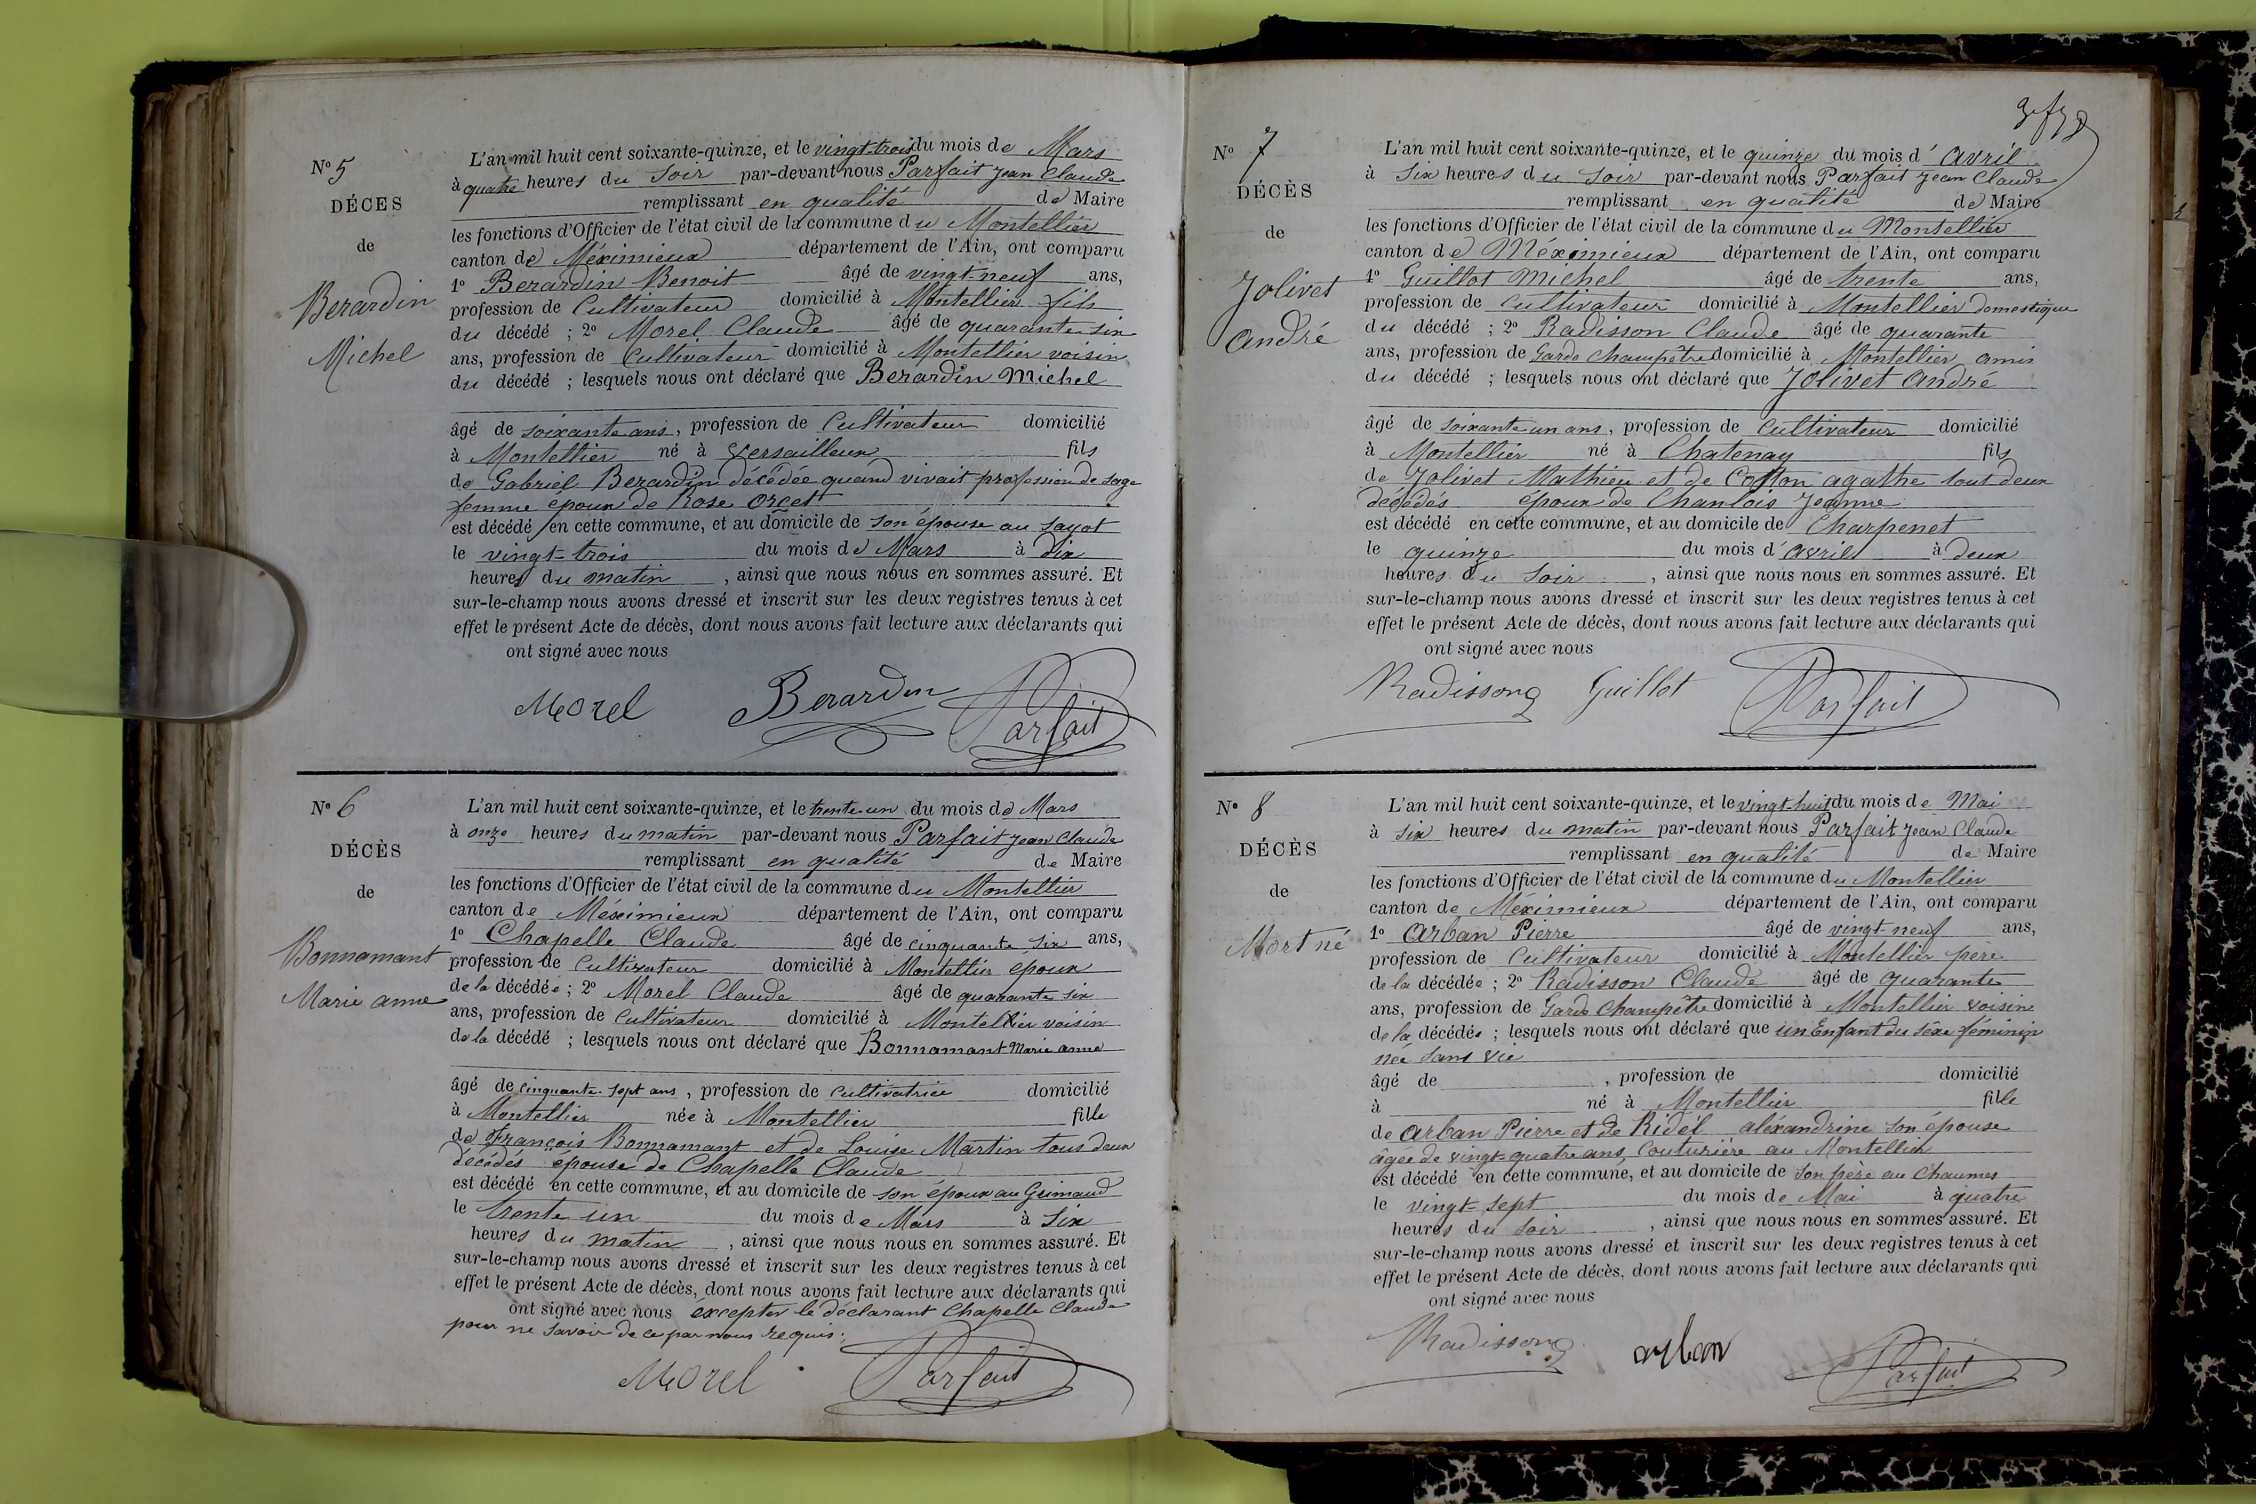 N° 5
DÉCES
de
Berardin
Michel
L'an mil huit cent soixante-quinze, et le vingt-trois du mois de Mars
à quatre heures du soir par-devant nous Parfait Jean Claude
remplissant en qualité de Maire
les fonctions d'Officier de l'état civil de la commune du Montellier
canton de Méximieux département de l'Ain, ont comparu
1° Berardin Benoit âgé de vingt-neuf ans,
profession de Cultivateur domicilié à Montellier fils
du décédé ; 2° Morel Claude âgé de quarante six
ans, profession de Cultivateur domicilié à Montellier voisin
du décédé ; lesquels nous ont déclaré que Berardin Michel
âgé de soixante ans, profession de Cultivateur domicilié
à Montellier né à Versailleux fils
de Gabriel Berardin décédée quand vivait profession de sage
femme époux de Rose Orcet
est décédé en cette commune, et au domicile de son épouse au Sayot
le vingt-trois du mois de Mars à dix
heures du matin , ainsi que nous nous en sommes assuré. Et
sur-le-champ nous avons dressé et inscrit sur les deux registres tenus à cet
effet le présent Acte de décès, dont nous avons fait lecture aux déclarants qui
ont signé avec nous
Morel Berardin Parfait
N° 6
DÉCÈS
de
Bonnamant
Marie anne
L'an mil huit cent soixante-quinze, et le trente-un du mois de Mars
à onze heures du matin par-devant nous Parfait Jean Claude
remplissant en qualité de Maire
les fonctions d'Officier de l'état civil de la commune du Montellier
canton de Méximieux département de l'Ain, ont comparu
1° Chapelle Claude âgé de cinquante six ans,
profession de Cultivateur domicilié à Montellier époux
de la décédée ; 2° Morel Claude âgé de quarante six
ans, profession de Cultivateur domicilié à Montellier voisin
de la décédé ; lesquels nous ont déclaré que Bonnamant Marie anne
âgé de cinquante-sept ans , profession de cultivatrice domicilié
à Montellier née à Montellier fille
de François Bonnamant et de Louise Martin tous deux
décédés épouse de Chapelle Claude
est décédé en cette commune, et au domicile de son époux au Grimaud
le trente un du mois de Mars à six
heures du matin , ainsi que nous nous en sommes assuré. Et
sur-le-champ nous avons dressé et inscrit sur les deux registres tenus à cet
effet le présent Acte de décès, dont nous avons fait lecture aux déclarants qui
ont signé avec nous éxcepter le déclarant Chapelle Claude
pour ne savoir de ce par nous requis.
Morel Parfait
N° 7
DÉCÈS
de
Jolivet
André
L'an mil huit cent soixante-quinze, et le quinze du mois d' avril
à six heures du soir par-devant nous Parfait Jean Claude
remplissant en qualité de Maire
les fonctions d'Officier de l'état civil de la commune du Montellier
canton de Méximieux département de l'Ain, ont comparu
1° Guillot Michel âgé de trente ans,
profession de cultivateur domicilié à Montellier domestique
du décédé ; 2° Radisson Claude âgé de quarante
ans, profession de Garde champêtre domicilié à Montellier amis
du décédé ; lesquels nous ont déclaré que Jolivet André
âgé de soixante un ans, profession de Cultivateur domicilié
à Montellier né à Chatenay fils
de Jolivet Mathieu et de Cotton agathe tous deux
décédés époux de Chanlois Jeanne
est décédé en cette commune, et au domicile de Charpenet
le quinze du mois d' avril à deux
heures du soir , ainsi que nous nous en sommes assuré. Et
sur-le-champ nous avons dressé et inscrit sur les deux registres tenus à cet
effet le présent Acte de décès, dont nous avons fait lecture aux déclarants qui
ont signé avec nous
Radisson Guillot Parfait
N° 8
DÉCÈS
de
Mort né
L'an mil huit cent soixante-quinze, et le vingt-huit du mois de Mai
à six heures du matin par-devant nous Parfait Jean Claude
remplissant en qualité de Maire
les fonctions d'Officier de l'état civil de la commune du Montellier
canton de Méximieux département de l'Ain, ont comparu
1° Arban Pierre âgé de vingt-neuf ans,
profession de Cultivateur domicilié à Montellier père
de la décédée ; 2° Radisson Claude âgé de quarante
ans, profession de Garde Champêtre domicilié à Montellier voisin
de la décédée ; lesquels nous ont déclaré que un Enfant du séxe féminin
née sans vie
âgé de , profession de domicilié
à né à Montellier fille
de Arban Pierre et de Ridél aléxandrine son épouse
âgée de vingt-quatre ans, Couturière au Montellier
est décédé en cette commune, et au domicile de son père au Chaumes
le vingt-sept du mois de Mai à quatre
heures du soir , ainsi que nous nous en sommes assuré. Et
sur-le-champ nous avons dressé et inscrit sur les deux registres tenus à cet
effet le présent Acte de décès, dont nous avons fait lecture aux déclarants qui
ont signé avec nous
Radisson arban Parfait